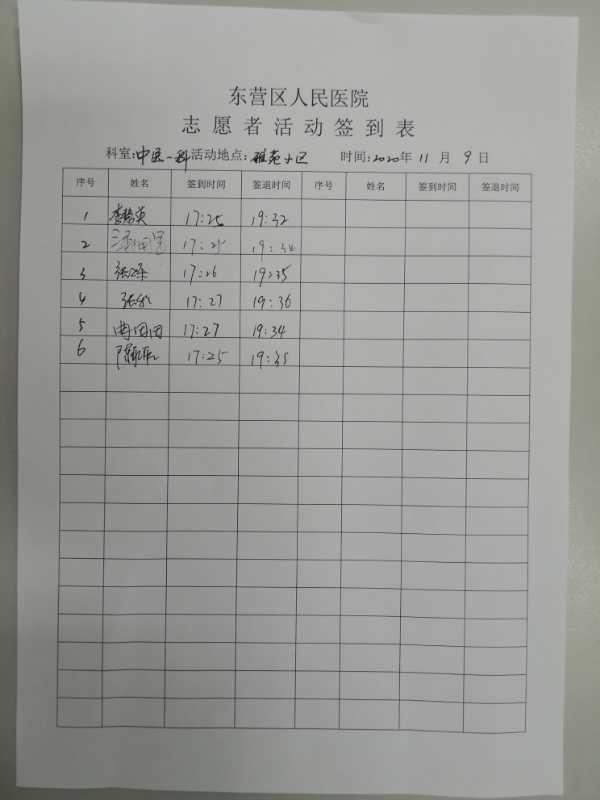 东营区人民医院
志愿者活动签到表
科室:中医一科 活动地点:雅苑小区 时间:2020年11月9日
序号 姓名 签到时间 签退时间 序号 姓名 签到时间 签退时间
1 17:25 19:32
2 17:25 19:34
3 17:26 19:35
4 17:27 19:36
5 曲团团 17:27 19:34
6 17:25 19:35